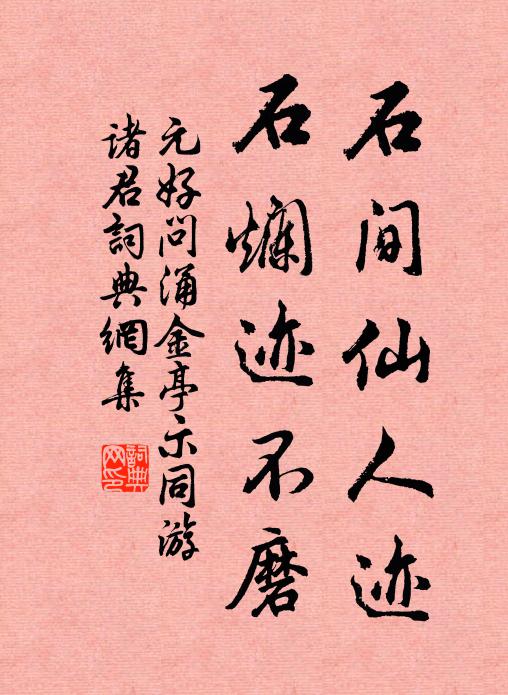 石间仙人迹
石爛迹不磨
元好问涌金亭示同游
诸君詞典網集
詞典网印